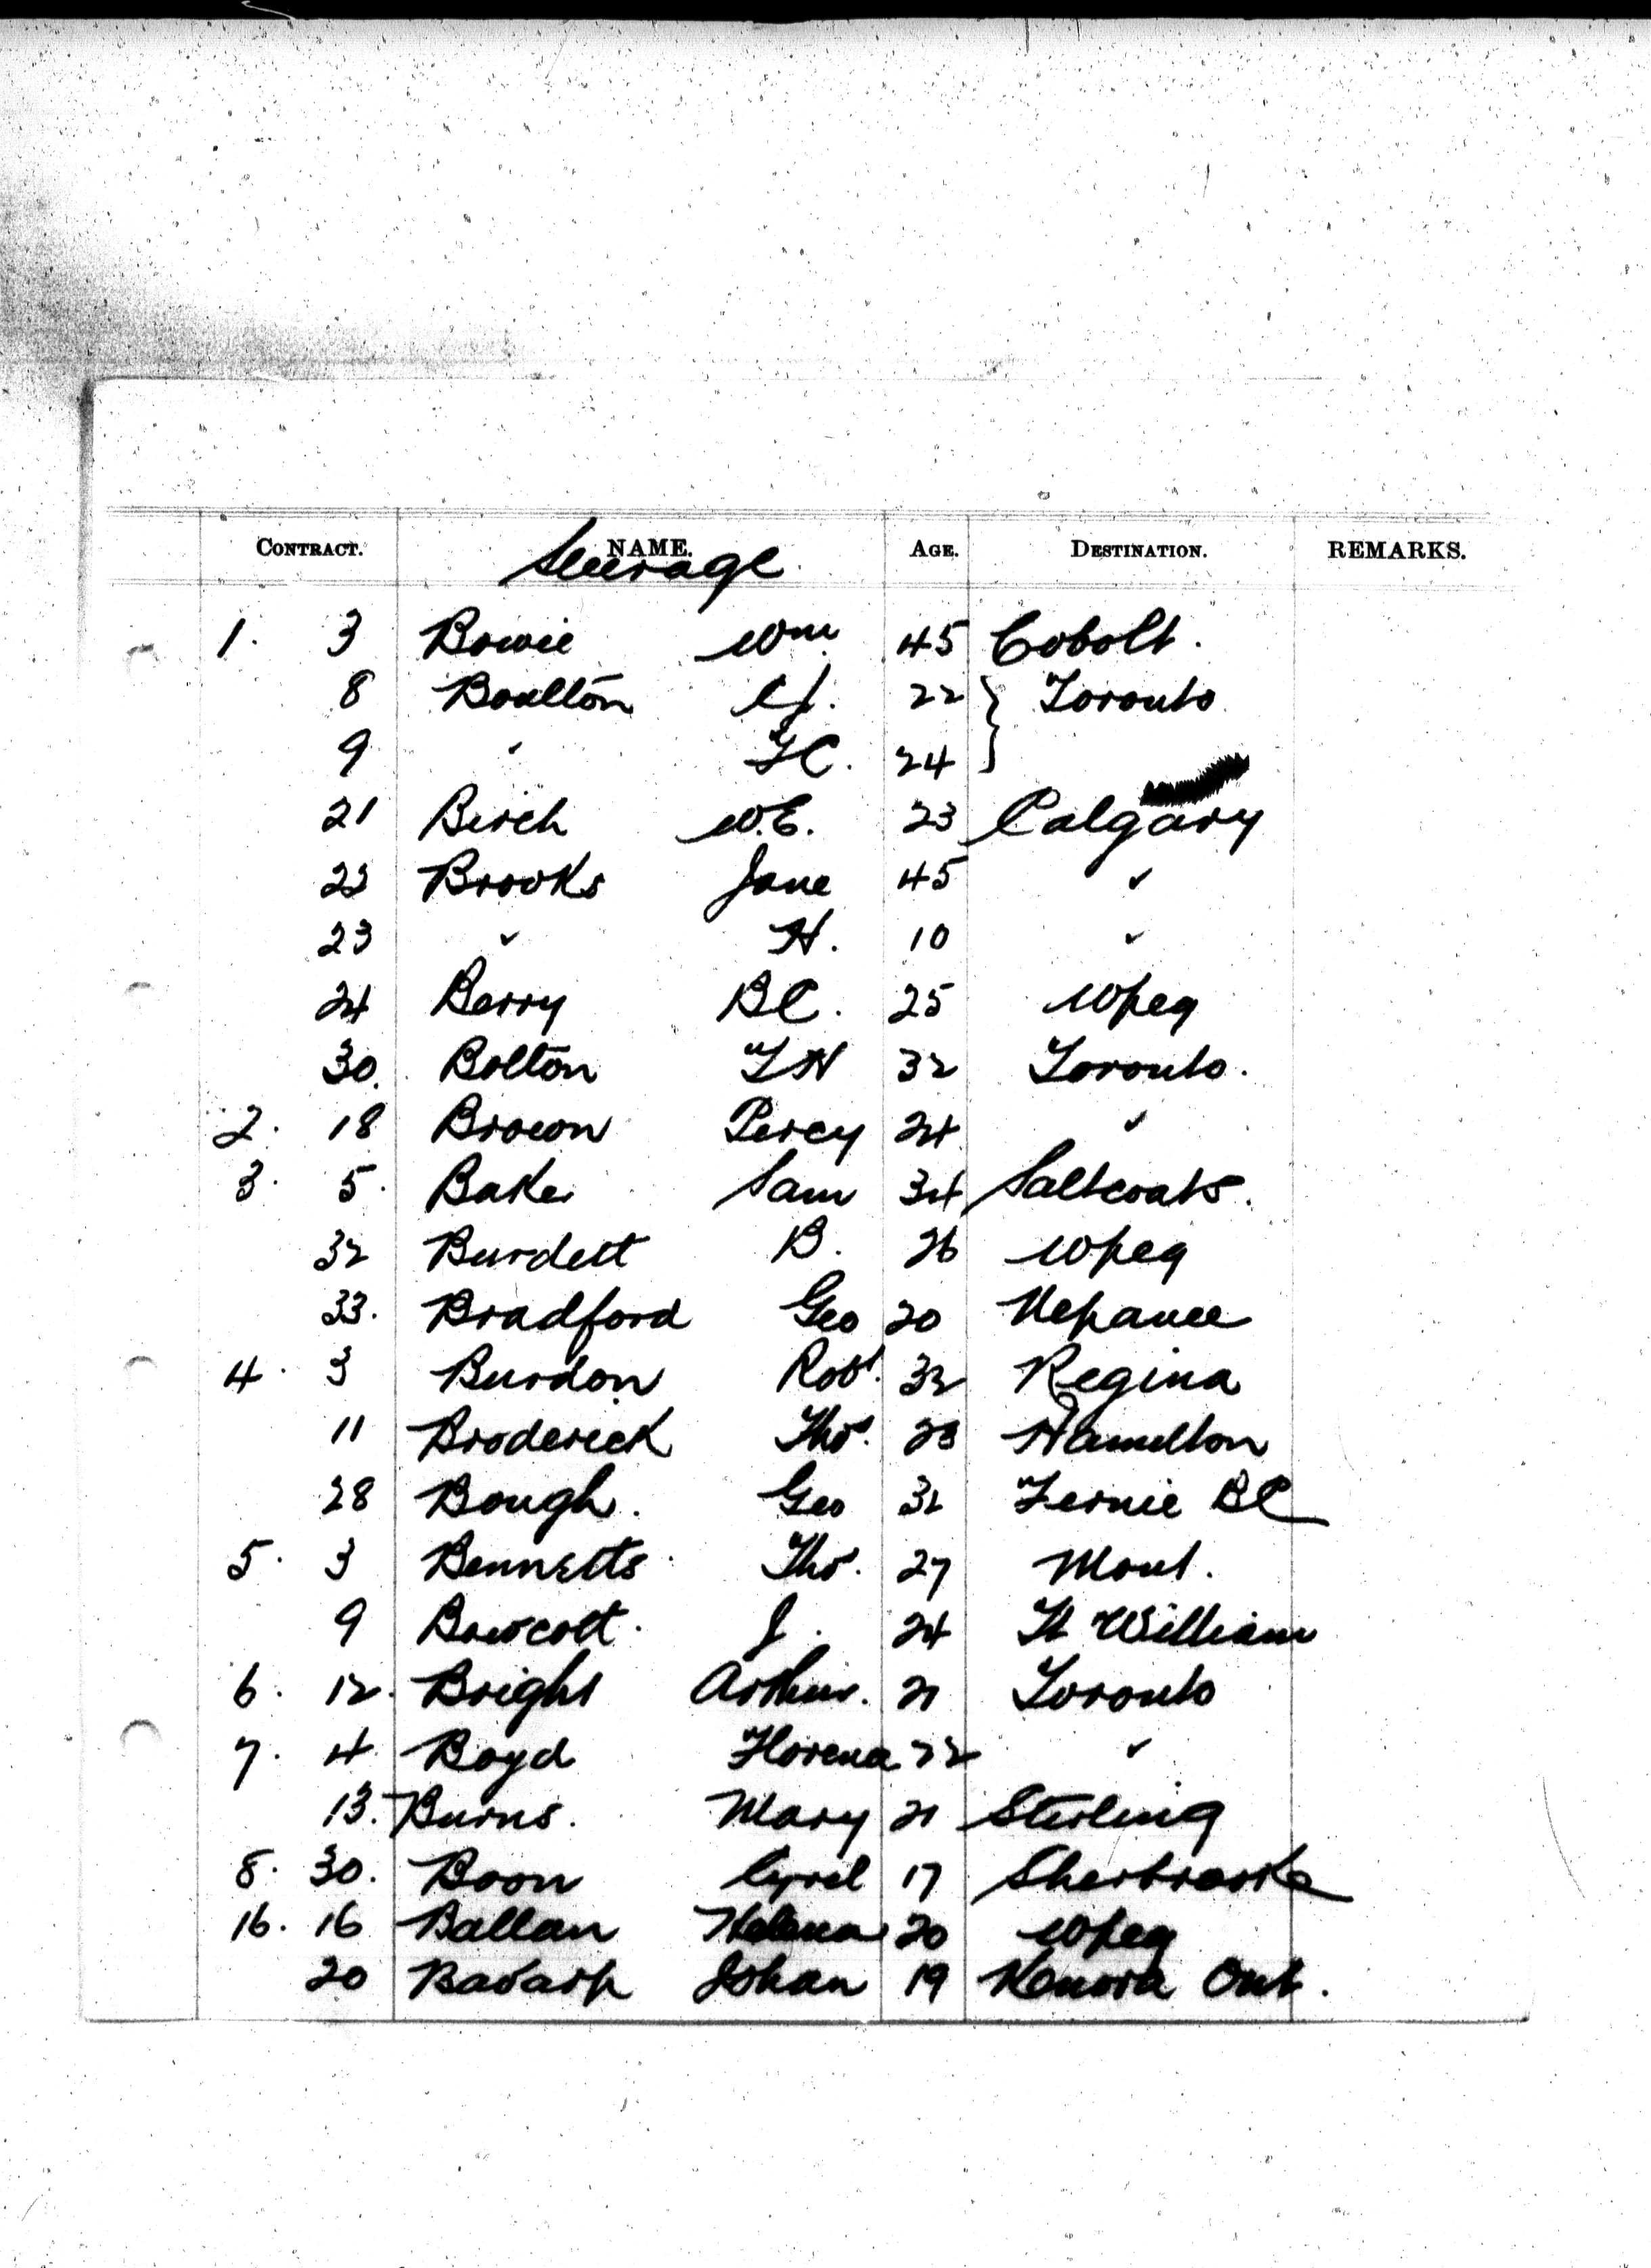 CONTRACT. NAME. AGE. DESTINATION. REMARKS.
Steerage
1. 3 Bowie Wm 45 Cobolt.
8 Boulton 22 } Toronto
9 " 24
21 Birch W.E. 23 Calgary
22 Brooks Jane 45 "
23 " H. 10 "
24 Berry BC. 25 Wpeg
30. Bolton 32 Toronto.
2. 18 Brown Percy 24 "
3. 5. Baker Sam 34 Saltcoats.
32 Burdett B. 26 Wpeg
33. Bradford Geo 20 Nepanee
4. 3 Burdon Robt. 32 Regina
11 Broderick Thos. 28 Hamilton
28 Bough. Geo 32 Fernie BC
5. 3 Bennetts Thos. 27 Mont.
9 Bowcott. J. 24 Ft William
6. 12. Bright Arthur. 21 Toronto
7. 4 Boyd Florence 22 "
13. Burns. Mary 21 Sterling
8. 30. Boon Cyril 17 Sherbrooke
16. 16 Ballan Helena 20 Wpeg
20 Johan 19 Kenora Ont.